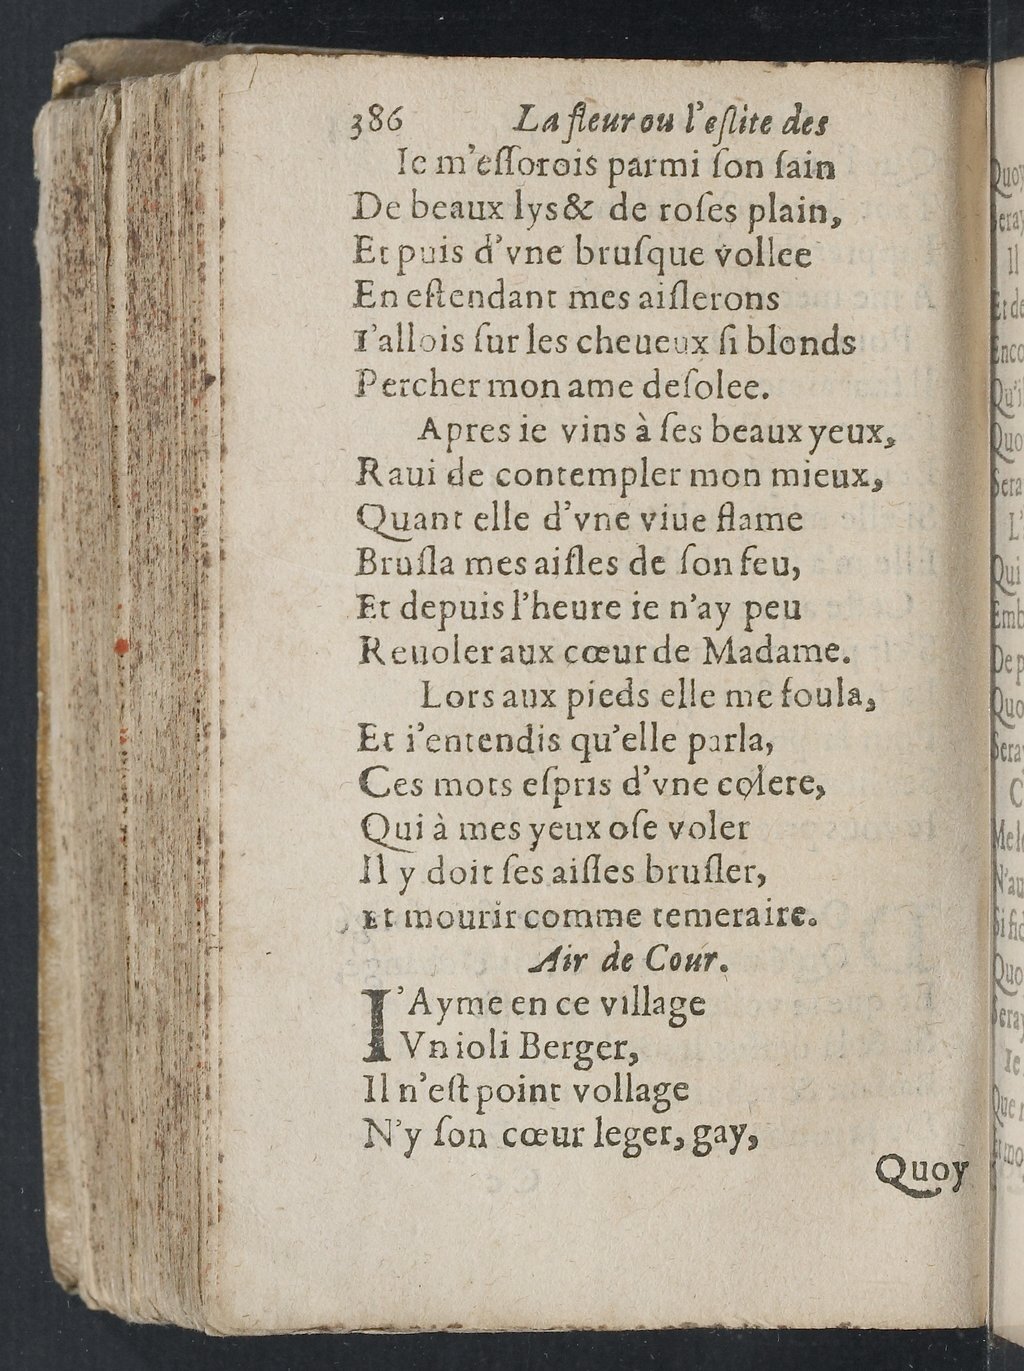 386 La fleur ou l'eſlite des
Ie m'eſſorois parmi ſon ſain
De beaux lys & de roſes plain,
Et puis d'vne bruſque vollee
En eſtendant mes aiſlerons
I'allois ſur les cheueux ſi blonds
Percher mon ame deſolee.
Apres ie vins à ſes beaux yeux,
Raui de contempler mon mieux,
Quant elle d'vne viue flame
Bruſla mes aiſles de ſon feu,
Et depuis l'heure ie n'ay peu
Reuoler aux cœur de Madame.
Lors aux pieds elle me foula,
Et i'entendis qu'elle parla,
Ces mots eſpris d'vne colere,
Qui à mes yeux oſe voler
Il y doit ſes aiſles bruſler,
Et mourir comme temeraire.
Air de Cour.
I'Ayme en ce village
Vn ioli Berger,
Il n'eſt point vollage
N'y ſon cœur leger, gay,
Quoy